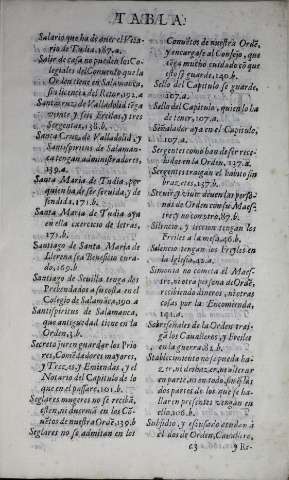 TABLA
Salario que ha de aver el Vica
rio de Tudia. 187.a.
Salir de casa no pueden los Co
legiales del Convento que la
Orden tiene en Salamanca,
sin licencia del Retor. 192.a
Santa cruz de Valladolid tēga
veinte y seis Freiles y tres
Sergentas. 138.b.
Santa Cruz de Valladolid, y
Santispiritus de Salaman-
ca tengan administradores,
139.a.
Santa Maria de Tudia, por
quien ha de ser servida, y de-
fendida. 171.b.
Santa Maria de Tudia aya
en ella exercicio de letras,
171.b.
Santiago de Santa Maria de
Llerena sea Beneficio cura-
do. 167.b.
Santiago de Sevilla tenga dos
Prebendados a su costa en el
Colegio de Salamāca. 190.a
Santispiritus de Salamanca,
que antiguedad tiene en la
Orden. 3.b.
Secreto juren guardar los Prio
res, Comēdadores mayores,
y Trezes, y Emiendas, y el
Notario del Capitulo de lo
que en el passare. 101.b.
Seglares mugeres no se recibā,
esten, ni duerman en los Cō
vētos de nuestra Ordē. 139.b
Seglares no se admitan en los
Convētos de nuestra Ordē,
y encargase al Consejo, que
tēga mucho cuidado cō que
esto se guarde. 140.b.
Sello del Capitulo se guarde,
107.a.
Sello del Capitulo, quien lo ha
de tener. 107.a.
Señalador aya en el Capitulo,
107.a.
Sergentes como han de ser rece
bidos en la Orden. 137.a.
Sergentes traigan el habito sin
braços, etc. 137.b.
Servir y vivir deven las perso-
nas de Orden con su Maes-
tre, y no con otro. 89.b.
Silencio, y leccion tengan los
Freiles a la mesa. 46.b.
Silencio tengan los Freyles en
la Iglesia. 42.a.
Simonia no cometa el Maes-
tre, ni otra persona de Ordē
recibiendo dineros, ni otras
cosas por la Encomienda,
191.a.
Sobreseñales de la Orden trai-
gā los Cavalleros, y Freiles
en la guerra. 82.b.
Stablecimiento no se pueda ha-
zer, ni deshazer, ni mudar
en parte, ni en todo, sin q̄ las
dos partes de los que se ha-
llaren presentes vengan en
ello. 106.b.
Subsidio, y escusado acudan à
el los de Orden, Cavallero,
c3 y Re-